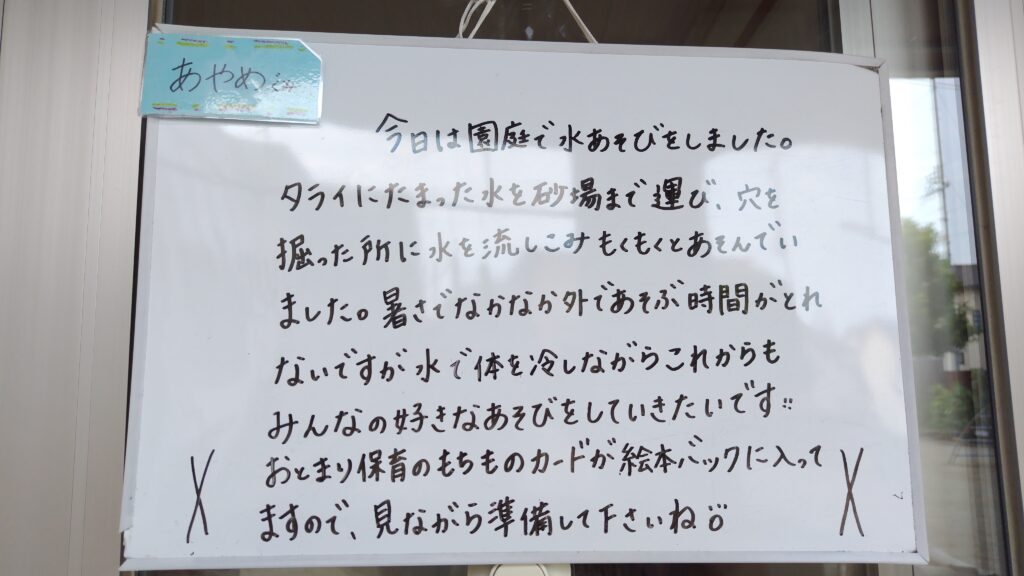 あやめぐみ
今日は園庭で水あそびをしました。
タライにたまった水を砂場まで運び、穴を
掘った所に水を流しこみもくもくとあそんでい
ました。暑さでなかなか外であそぶ時間がとれ
ないですが水で体を冷しながらこれからも
みんなの好きなあそびをしていきたいです!!
おとまり保育のもちものカードが絵本バックに入って
ますので、見ながら準備して下さいね